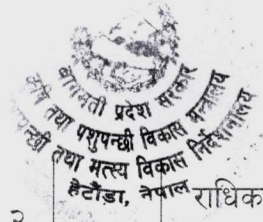 बागमती प्रदेश सरकार
कृषि तथा पशुपन्छी विकास मन्त्रालय
पन्छी तथा मत्स्य विकास निर्देशनालय
हेटौंडा, नेपाल
राधिक
२